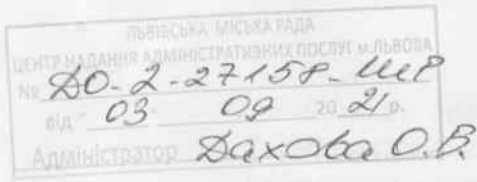 ЛЬВІВСЬКА МІСЬКА РАДА
ЦЕНТР НАДАННЯ АДМІНІСТРАТИВНИХ ПОСЛУГ м.ЛЬВОВА
№ ДО-2-27158-ШР
від " 03 " 09 20 21 р.
Адміністратор Дахова О.В.